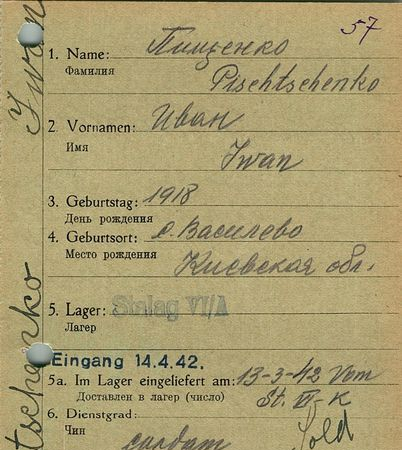 57
1. Name: Пищенко
Фамилия
Pischtschenko
2. Vornamen: Иван
Имя
Iwan
3. Geburtstag: 1918
День рождения
4. Geburtsort: с. Василево
Место рождения
Киевская обл.
5. Lager: Stalag VI/A
Лагерь
Eingang 14.4.42.
5a. Im Lager eingeliefert am: 13-3-42 Vom
Доставлен в лагерь (число) St. VI-K
6. Dienstgrad: Sold
Чин
солдат
Iwan
tschenko